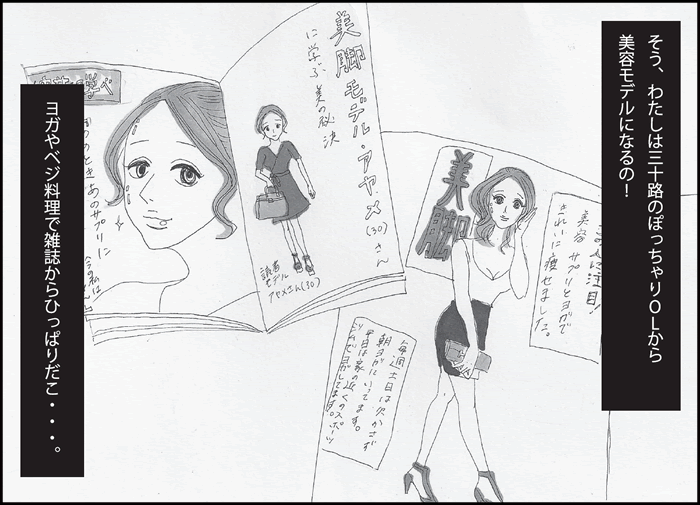 そう、わたしは三十路のぽっちゃりOLから
美容モデルになるの!
美脚モデル・アヤメ(30)さん
に学ぶ美の秘決
読者
モデル
アヤメさん(30)
美脚
注目!
美容サプリとヨガで
きれいに痩せました。
毎週土日は欠かさず
朝ヨガにいってます。
平日は家の近くのスポーツ
ジムでヨガしてます。
学べ
あのサプリに
今の私は
ヨガやベジ料理で雑誌からひっぱりだこ・・・。